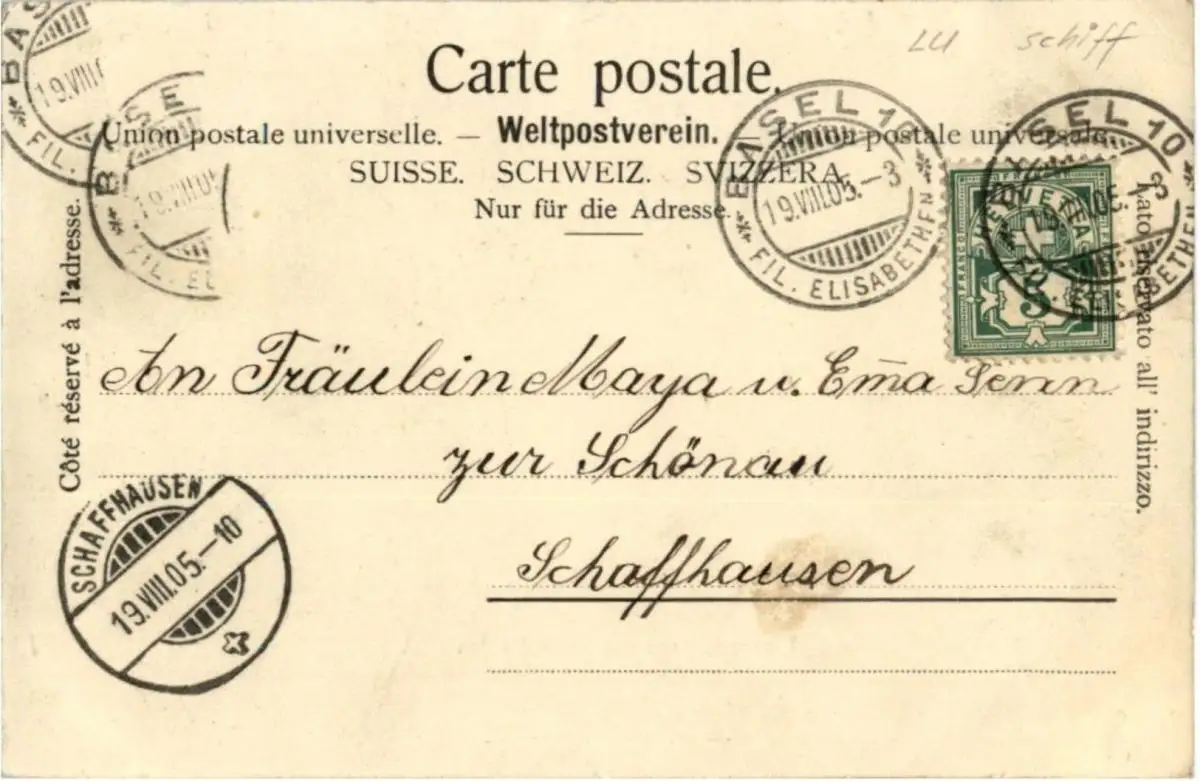 LU schiff
Carte postale.
Union postale universelle. — Weltpostverein. — Union postale universale.
SUISSE. SCHWEIZ. SVIZZERA.
Nur für die Adresse.
Côté réservé à l'adresse.
Lato riservato all' indirizzo.
BAS
19.VIII.
FIL.
BASE
19.VIII.05
FIL. EL
BASEL 10
19.VIII.05.–3
FIL. ELISABETHEN
BASEL 10
FIL. ELISABETHEN
HELVETIA
FRANCO
5
An Fräulein Maya u. Em̄a Senn
zur Schönau
Schaffhausen
SCHAFFHAUSEN
19.VIII.05.–10